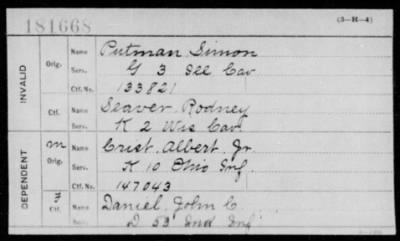 181668
(3-H-4)
INVALID
Orig. Name Putman Simon
Serv. G 3 Ill Cav
Ctf. No. 133821
Ctf. Name Seaver, Rodney
Serv. K 2 Wis Cav
DEPENDENT
m Orig. Name Crist, Albert, Jr.
Serv. K 10 Ohio Inf
Ctf. No. 147043
Ctf. Name Daniel, John C
Serv. D 53 Ind Inf